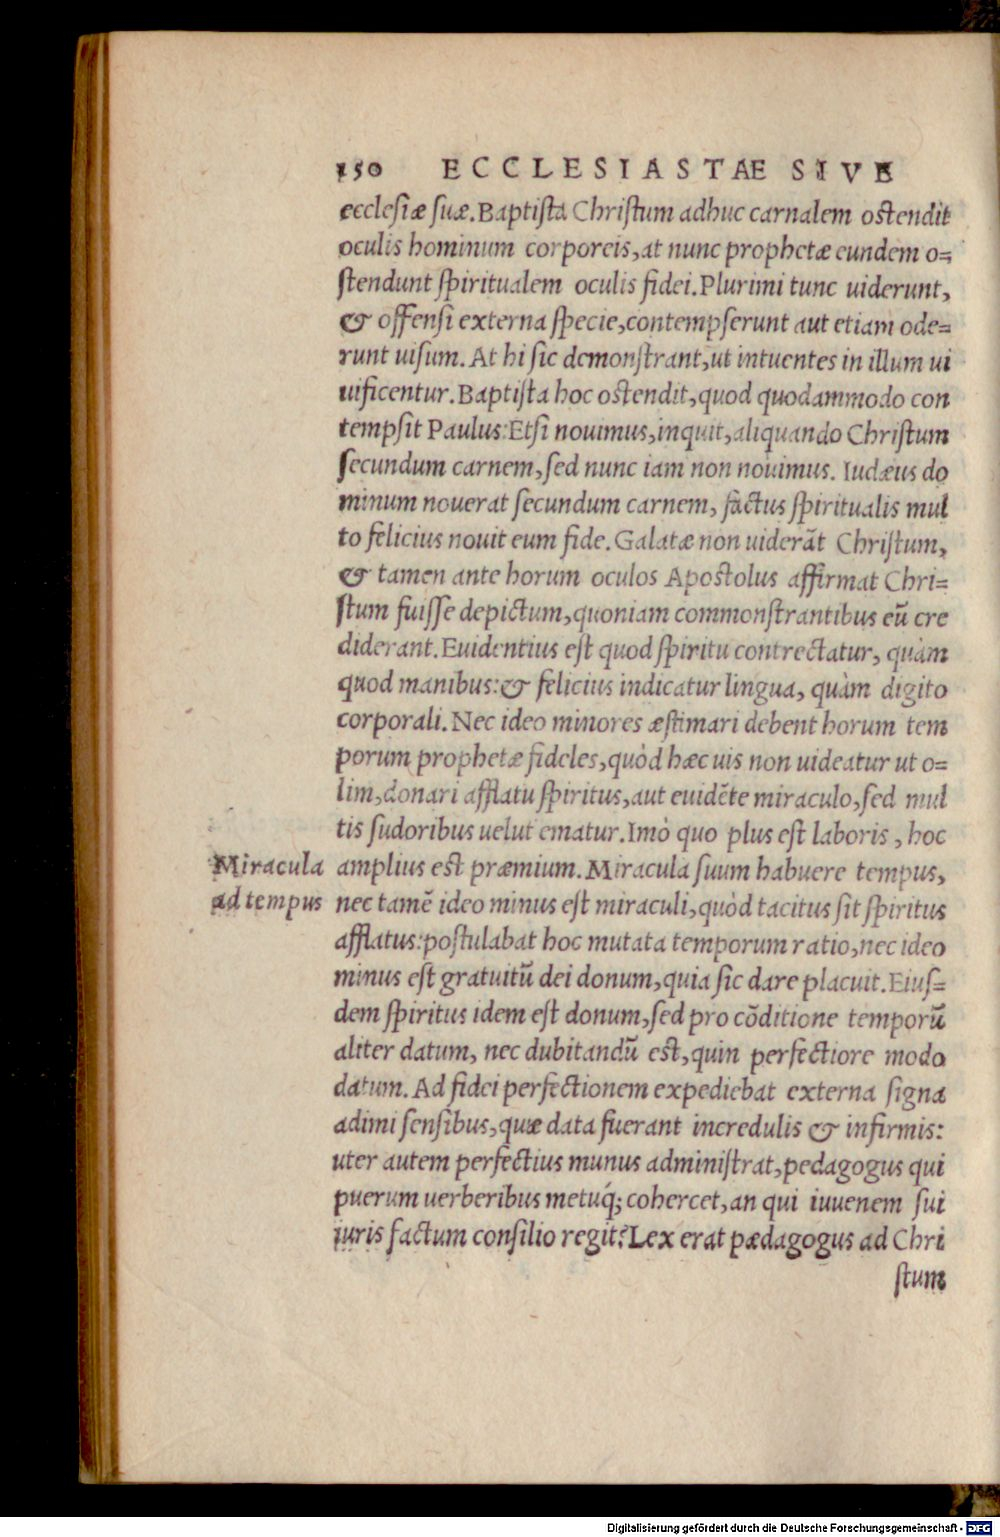 150 ECCLESIASTAE SIVE
ecclesiæ suæ. Baptista Christum adhuc carnalem ostendit
oculis hominum corporeis, at nunc prophetæ eundem o=
stendunt spiritualem oculis fidei. Plurimi tunc uiderunt,
& offensi externa specie, contempserunt aut etiam ode=
runt uisum. At hi sic demonstrant, ut intuentes in illum ui
uificentur. Baptista hoc ostendit, quod quodammodo con
tempsit Paulus: Etsi nouimus, inquit, aliquando Christum
secundum carnem, sed nunc iam non nouimus. Iudæus do
minum nouerat secundum carnem, factus spiritualis mul
to felicius nouit eum fide. Galatæ non uiderãt Christum,
& tamen ante horum oculos Apostolus affirmat Chri=
stum fuisse depictum, quoniam commonstrantibus eũ cre
diderant. Euidentius est quod spiritu contrectatur, quàm
quod manibus: & felicius indicatur lingua, quàm digito
corporali. Nec ideo minores æstimari debent horum tem
porum prophetæ fideles, quòd hæc uis non uideatur ut o=
lim, donari afflatu spiritus, aut euidẽte miraculo, sed mul
tis sudoribus uelut ematur. Imò quo plus est laboris, hoc
Miracula
ad tempus
amplius est præmium. Miracula suum habuere tempus,
nec tamẽ ideo minus est miraculi, quòd tacitus sit spiritus
afflatus: postulabat hoc mutata temporum ratio, nec ideo
minus est gratuitũ dei donum, quia sic dare placuit. Eius=
dem spiritus idem est donum, sed pro cõditione temporũ
aliter datum, nec dubitandũ est, quin perfectiore modo
datum. Ad fidei perfectionem expediebat externa signa
adimi sensibus, quæ data fuerant incredulis & infirmis:
uter autem perfectius munus administrat, pedagogus qui
puerum uerberibus metuq́; cohercet, an qui iuuenem sui
iuris factum consilio regit? Lex erat pædagogus ad Chri
stum
Digitalisierung gefördert durch die Deutsche Forschungsgemeinschaft - DFG